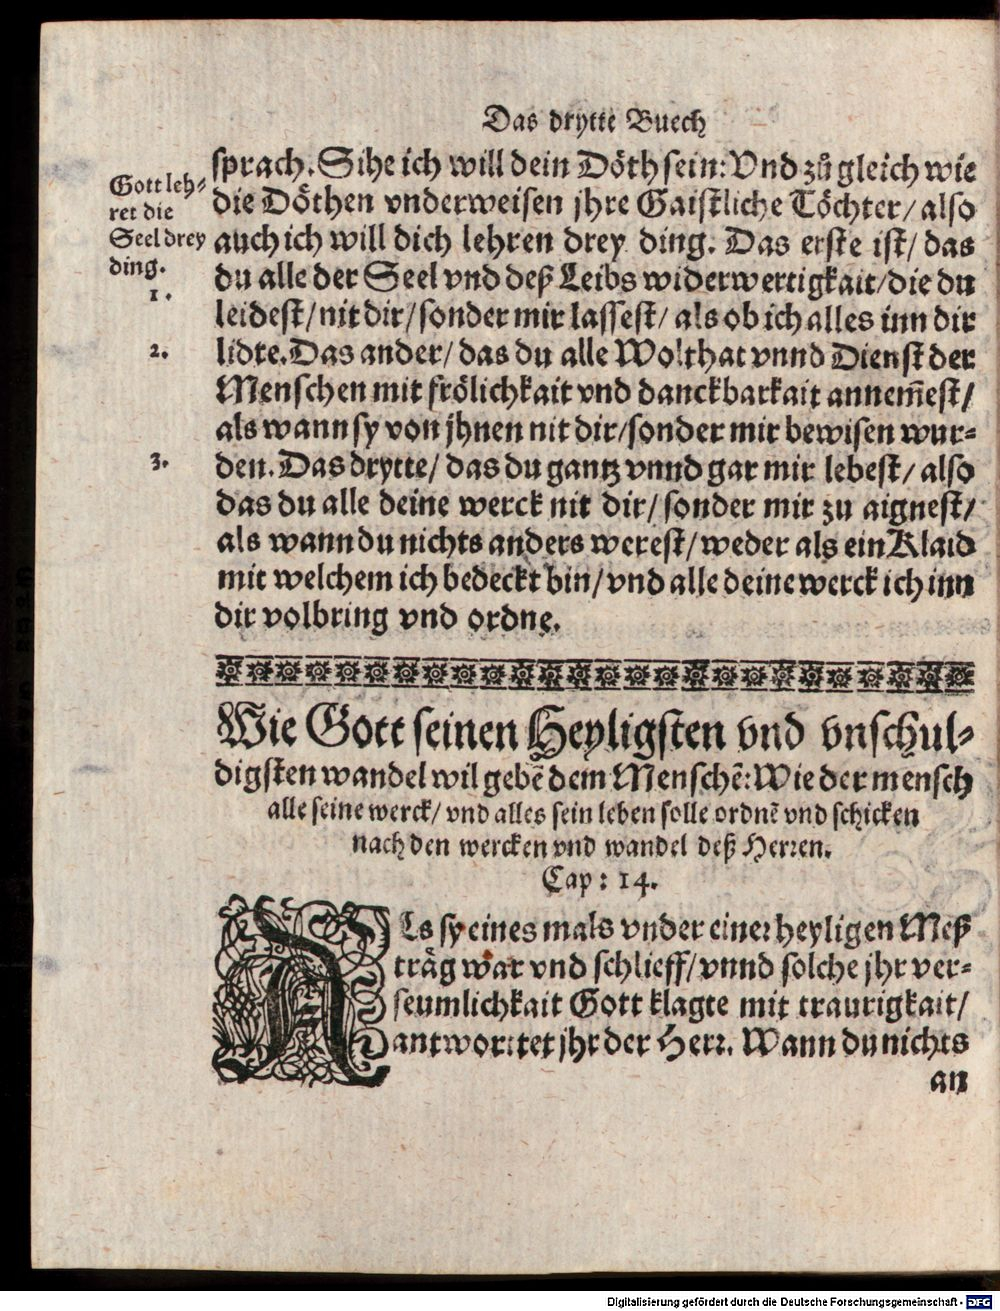 Das drytte Buech
Gott leh-
ret die
Seel drey
ding.
1.
2.
3.
sprach. Sihe ich will dein Döth sein: Vnd zů gleich wie
die Döthen vnderweisen jhre Gaistliche Töchter/ also
auch ich will dich lehren drey ding. Das erste ist/ das
du alle der Seel vnd deß Leibs widerwertigkait/ die du
leidest/ nit dir/ sonder mir lassest/ als ob ich alles inn dir
lidte. Das ander/ das du alle Wolthat vnnd Dienst der
Menschen mit frölichkait vnd danckbarkait annem̃est/
als wann sy von jhnen nit dir/ sonder mir bewisen wur-
den. Das drytte/ das du gantz vnnd gar mir lebest/ also
das du alle deine werck nit dir/ sonder mir zu aignest/
als wann du nichts anders werest/ weder als ein Klaid
mit welchem ich bedeckt bin/ vnd alle deine werck ich inn
dir volbring vnd ordne.
Wie Gott seinen Heyligsten vnd vnschul-
digsten wandel wil gebẽ dem Menschẽ: Wie der mensch
alle seine werck/ vnd alles sein leben solle ordnẽ vnd schicken
nach den wercken vnd wandel deß Herren.
Cap: 14.
ALs sy eines mals vnder einer heyligen Meß
träg war vnd schlieff/ vnnd solche jhr ver-
seumlichkait Gott klagte mit traurigkait/
antwortet jhr der Herr. Wann du nichts
an
Digitalisierung gefördert durch die Deutsche Forschungsgemeinschaft - DFG